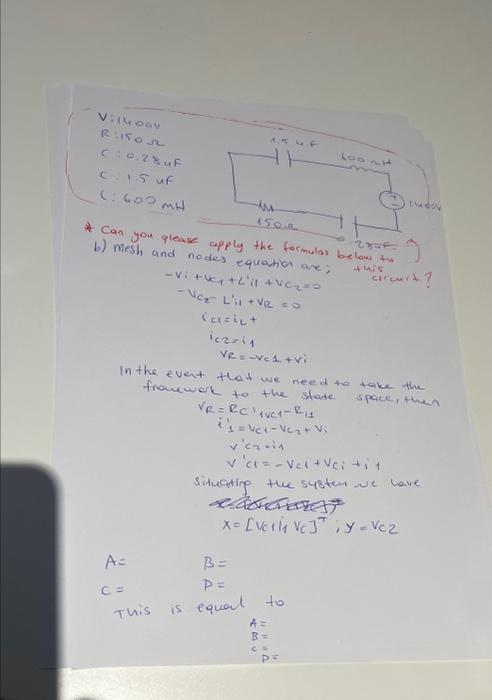 V:1400V
R:150Ω
C:0.28uF
C:1.5 uF
L:600 mH
1.5 uF
600 mH
1400V
150Ω
0.28uF
* Can you please apply the formulas below to
this
circuit?
b) mesh and nodes equation are;
-Vi+VC1+L'iL+VC2=0
-VC2-L'iL+VR=0
iC1=iL+
iC2=i1
VR=-VC1+Vi
In the event that we need to take the
framework to the state space, then
VR=RC'1VC1-Ri1
i'1=VC1-VC2+Vi
V'C2=i1
V'C1=-VC1+VCi+i1
situating the system we have
X=[VC1 i1 VC]ᵀ; y=VC2
A= B=
C= D=
This is equal to
A=
B=
C=
D=